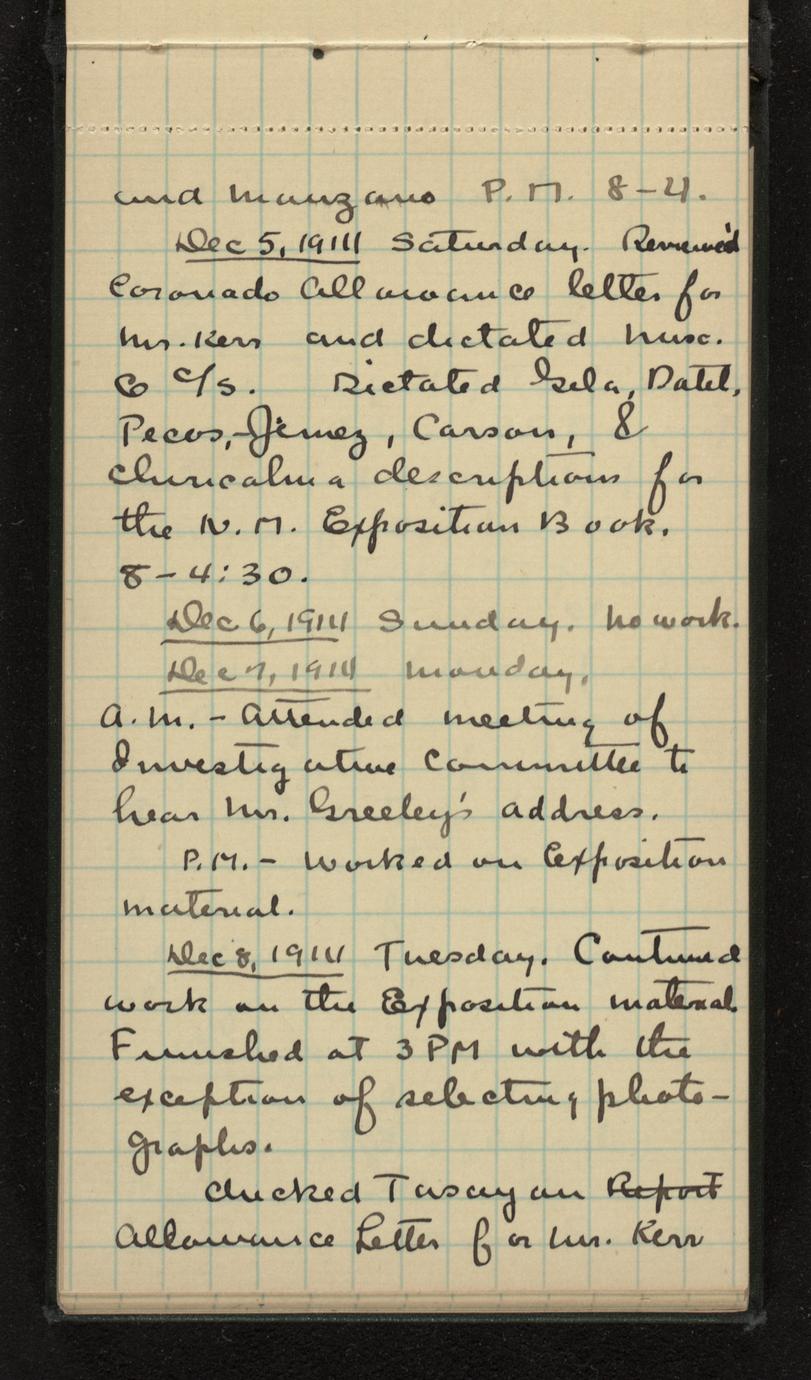 and Manzano P.M. 8-4.
Dec 5, 1914 Saturday. Reviewed
Coronado Allowance letter for
Mr. Kerr and dictated misc.
G C/S. Dictated Gila, Datil,
Pecos, Jemez, Carson, &
Chiricahua descriptions for
the N.M. Exposition Book.
8-4:30.
Dec 6, 1914 Sunday. No work.
Dec 7, 1914 Monday,
A.M. - Attended meeting of
Investigative Committee to
hear Mr. Greeley's address.
P.M. - Worked on Exposition
material.
Dec 8, 1914 Tuesday. Continued
work on the Exposition material
Finished at 3 PM with the
exception of selecting photo-
graphs.
Checked Tusayan Report
Allowance Letter for Mr. Kerr